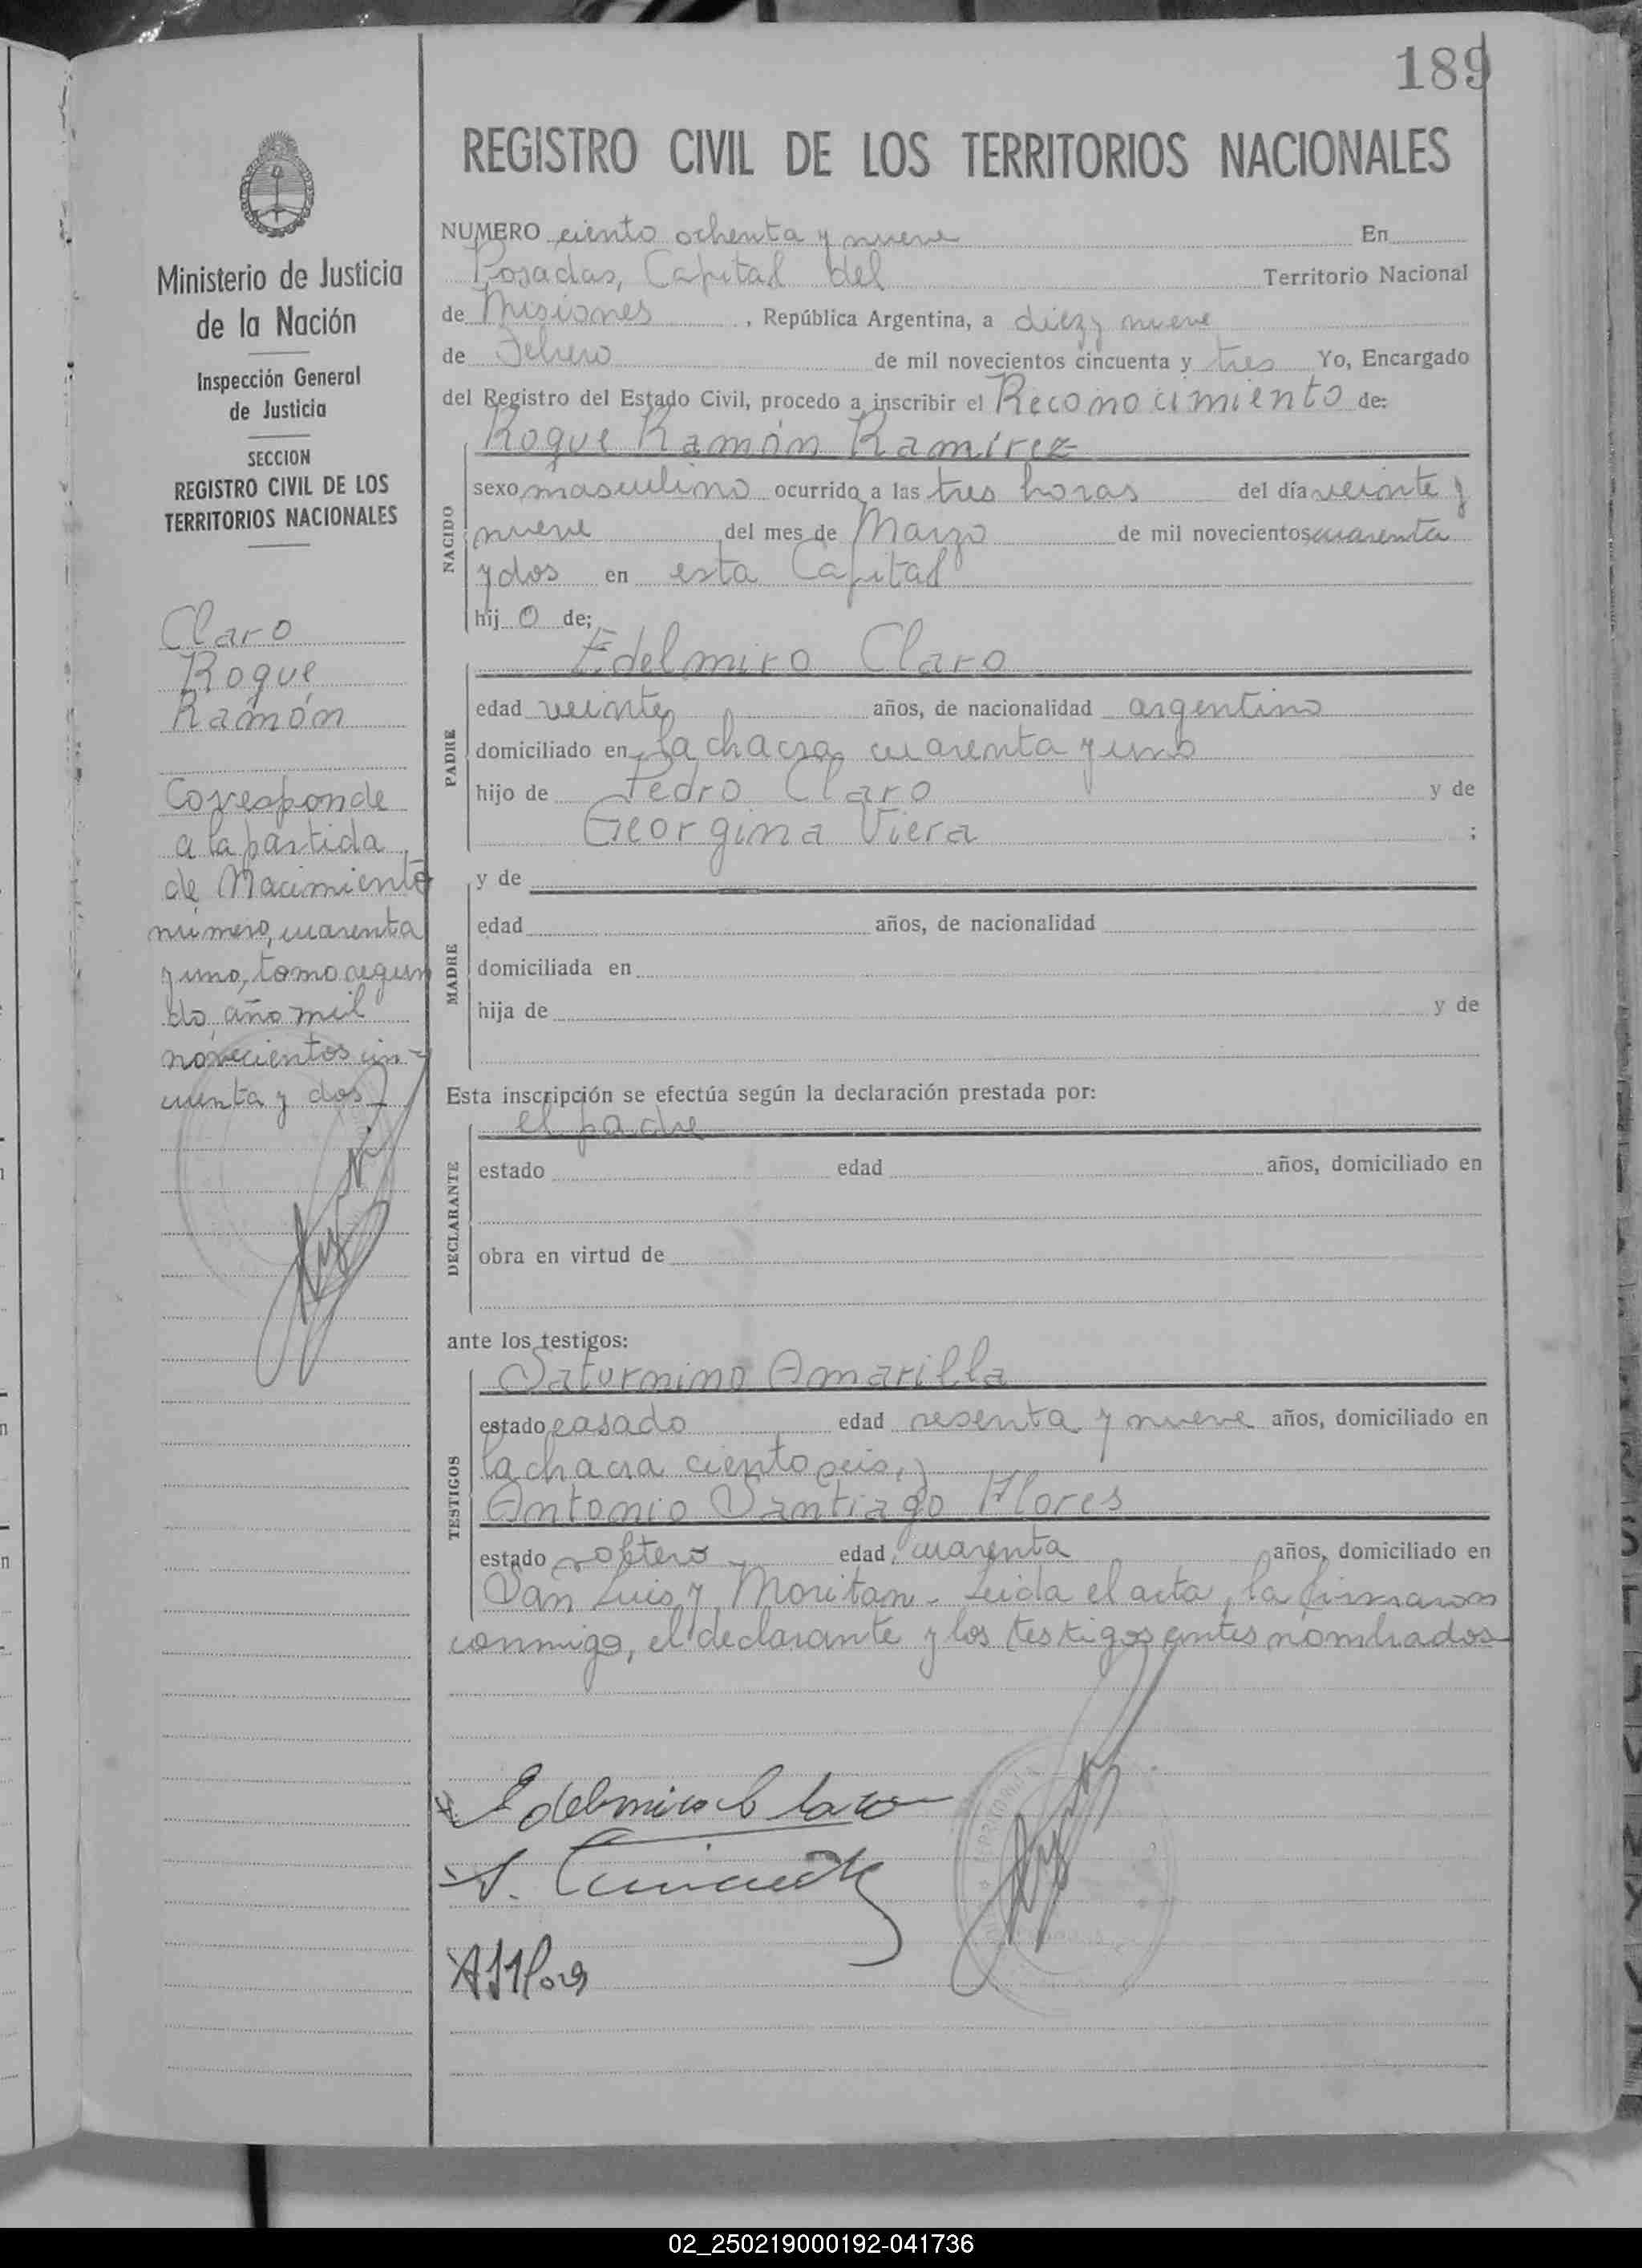 189
REGISTRO CIVIL DE LOS TERRITORIOS NACIONALES
Ministerio de Justicia
de la Nación
Inspección General
de Justicia
SECCION
REGISTRO CIVIL DE LOS
TERRITORIOS NACIONALES
Claro
Roque
Ramón
Corresponde
a la partida
de Nacimiento
número, cuarenta
y uno, tomo segun
do, año mil
novecientos cin-
cuenta y dos
NUMERO ciento ochenta y nueve En
Posadas, Capital del Territorio Nacional
de Misiones, República Argentina, a diez y nueve
de Febrero de mil novecientos cincuenta y tres Yo, Encargado
del Registro del Estado Civil, procedo a inscribir el Reconocimiento de:
NACIDO
Roque Ramón Ramírez
sexo masculino ocurrido a las tres horas del día veinte y
nueve del mes de Marzo de mil novecientos cuarenta
y dos en esta Capital
hij o de;
PADRE
Edelmiro Claro
edad veinte años, de nacionalidad argentino
domiciliado en la chacra cuarenta y uno
hijo de Pedro Claro y de
Georgina Viera ;
MADRE
y de
edad años, de nacionalidad
domiciliada en
hija de y de
Esta inscripción se efectúa según la declaración prestada por:
DECLARANTE
el padre
estado edad años, domiciliado en
obra en virtud de
ante los testigos:
TESTIGOS
Saturnino Amarilla
estado casado edad sesenta y nueve años, domiciliado en
la chacra ciento seis, y
Antonio Santiago Flores
estado soltero edad cuarenta años, domiciliado en
San Luis y Moritan. Leida el acta, la firmaron
conmigo, el declarante y los testigos antes nombrados
Edelmiro Claro
S.
A S Flores
02_250219000192-041736